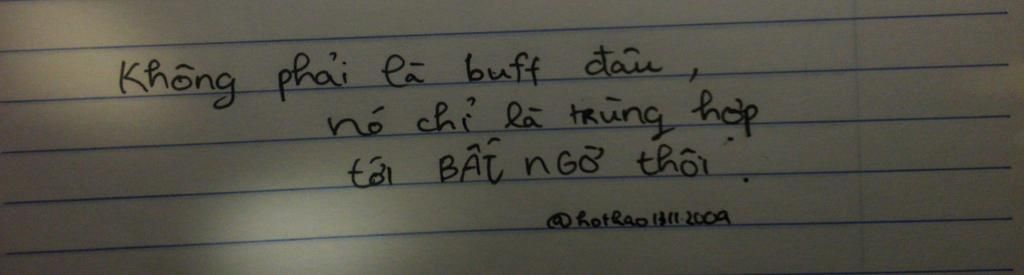 Không phải là buff đâu,
nó chỉ là trùng hợp
tới BẤT NGỜ thôi.
@hothao1311.2009